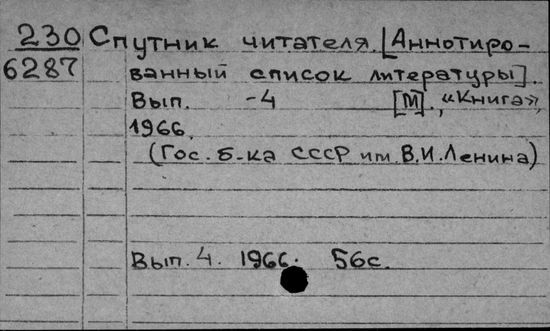 230 Спутник читателя. [Аннотиро-
6287 ванный список литературы].
Вып. -4 [М]. «Книга»,
1966.
(Гос. б-ка СССР им. В.И. Ленина)
Вып. 4. 1966. 56с.